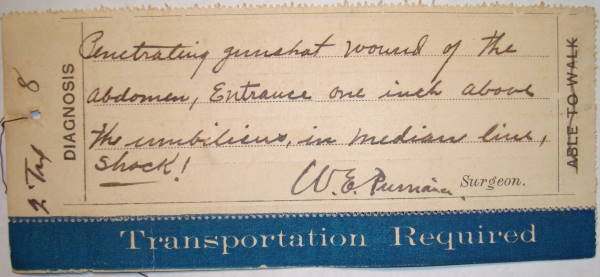 Penetrating gunshot wound of the
abdomen, Entrance one inch above
the umbilicus, in median line,
Shock!
W. E. Surgeon.
DIAGNOSIS
ABLE TO WALK
Transportation Required